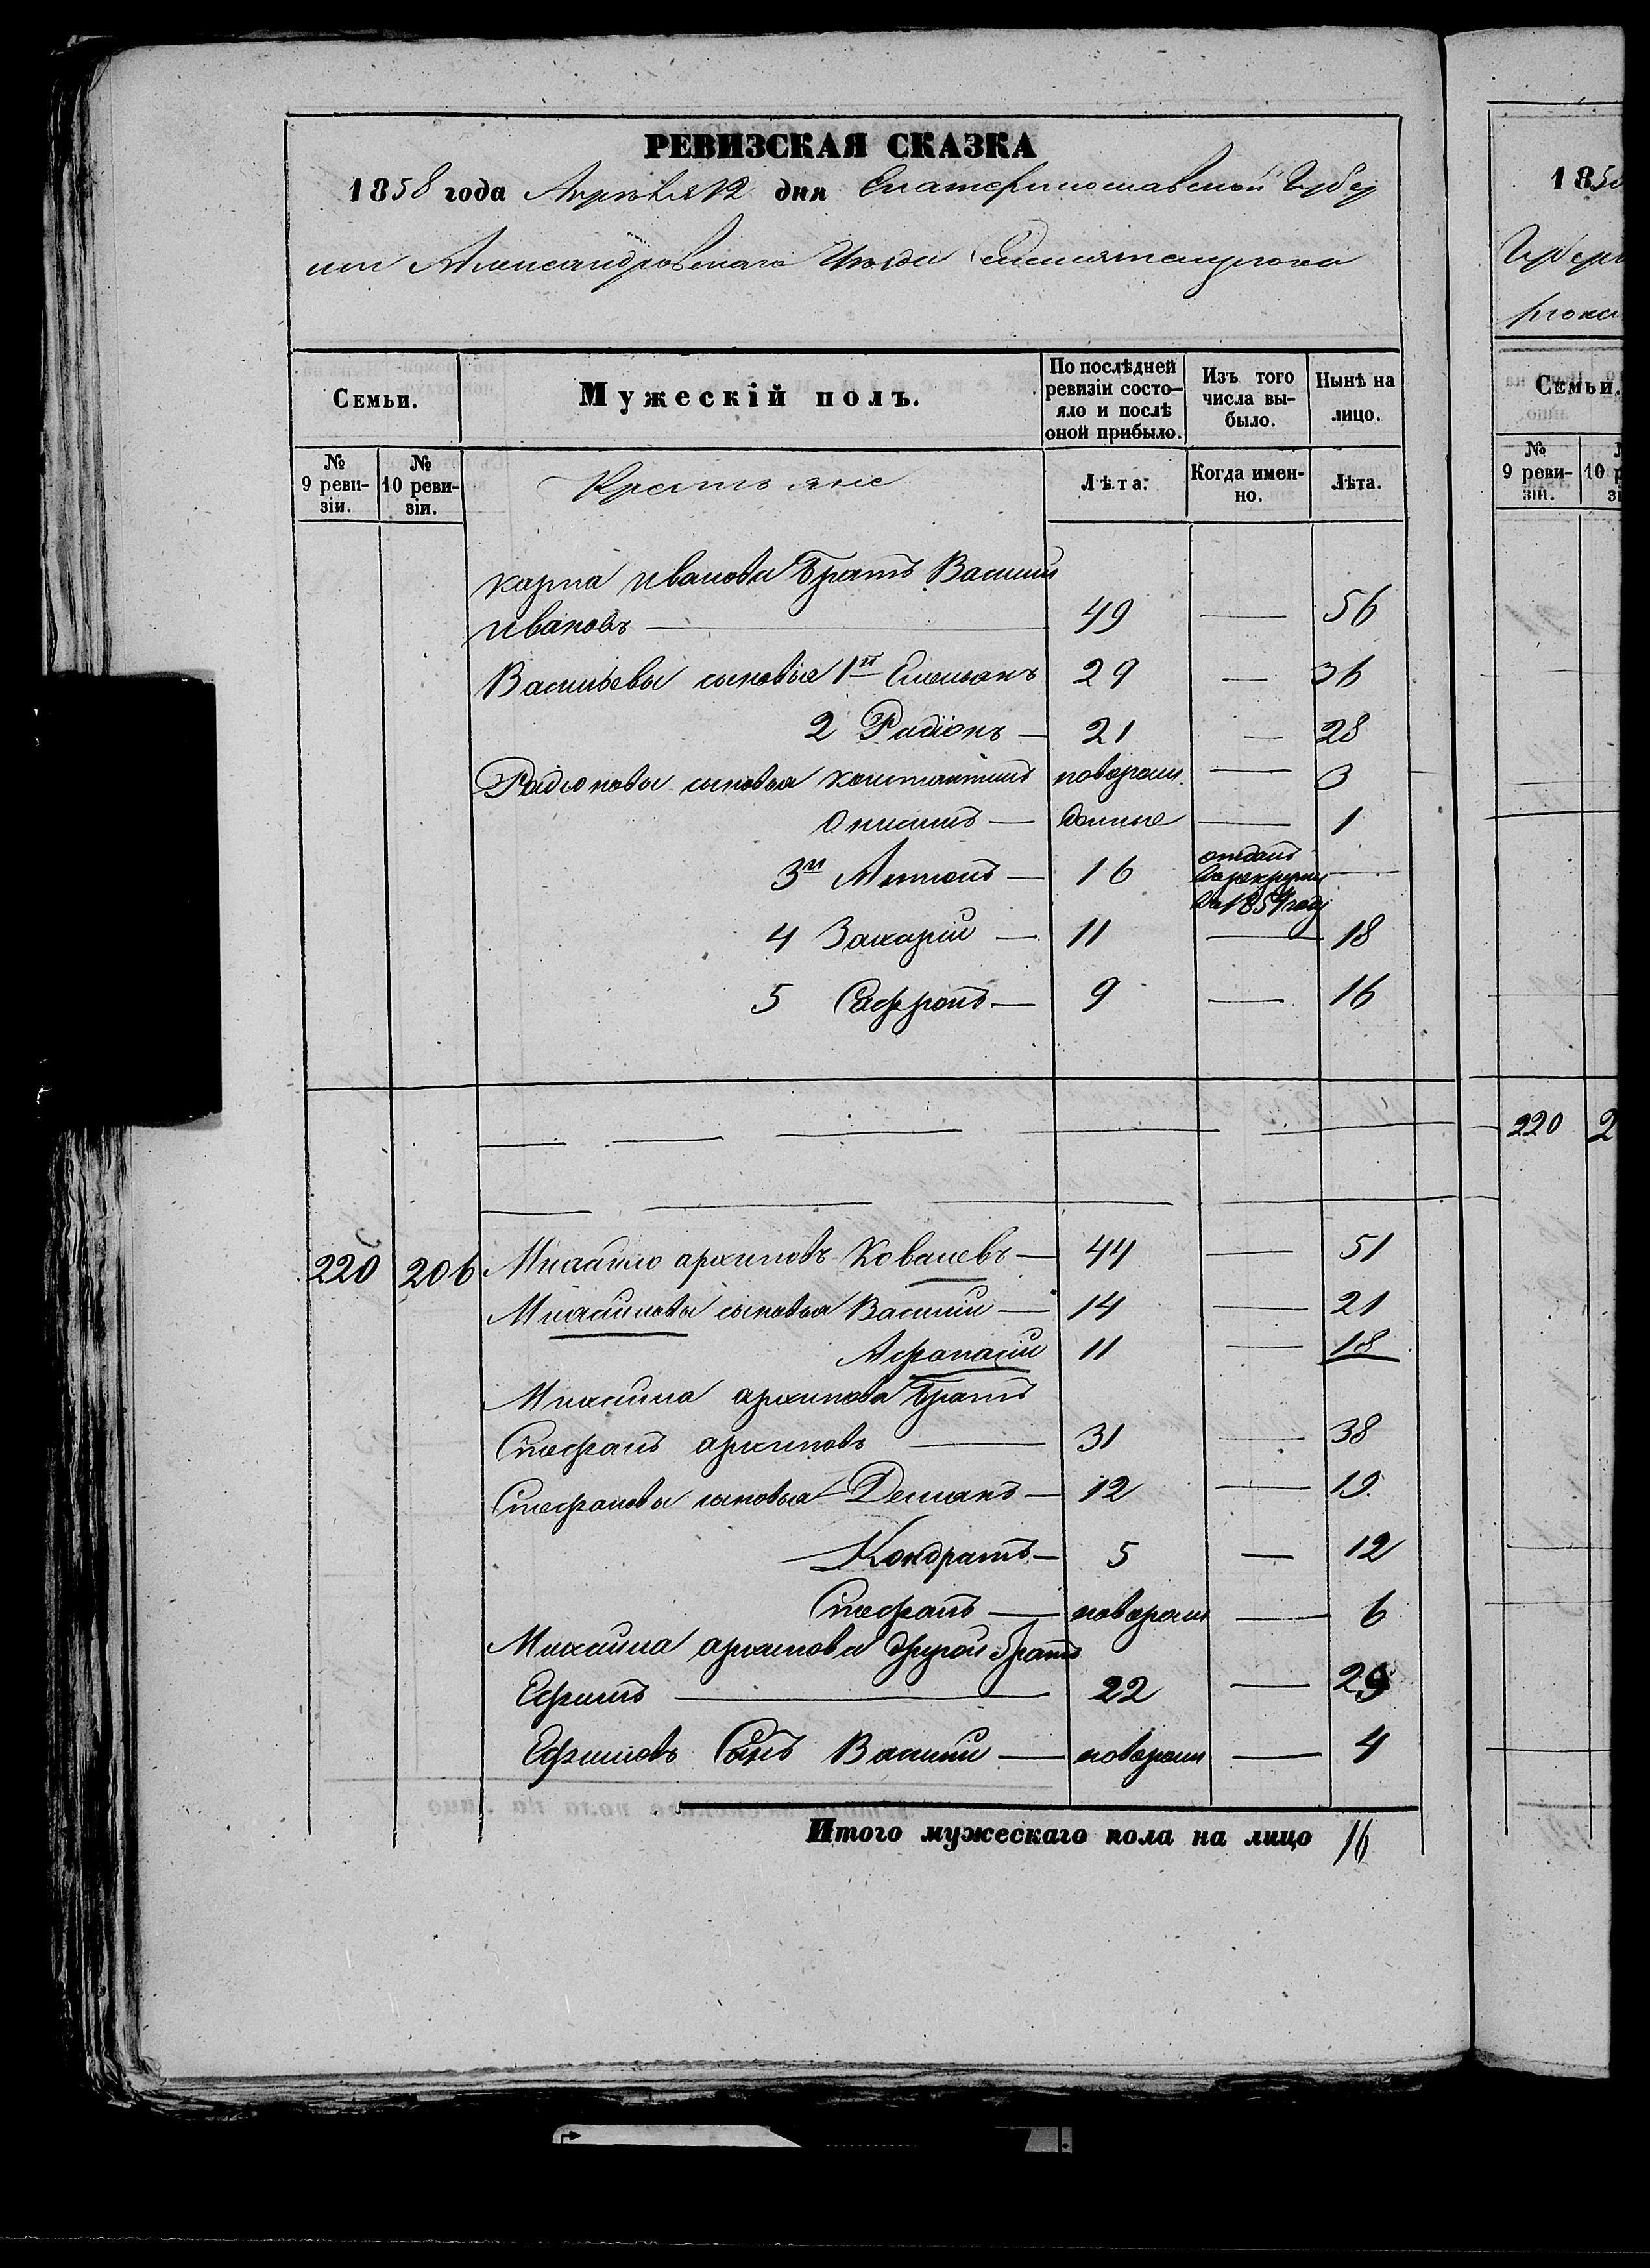 РЕВИЗСКАЯ СКАЗКА
1858 года Апреля 12 дня Екатеринославской Губер
нии Александровскаго Уезда
Семьи.
Мужескій полъ.
По послѣдней ревизіи состо-яло и послѣ оной прибыло.
Изъ того числа вы-было.
Нынѣ на лицо.
№ 9 реви-зіи.
№ 10 реви-зіи.
Крестьяне
Лѣта.
Когда имен-но.
Лѣта.
Карпа иванова Братъ Василій
ивановъ — 49 — 56
Васильевы сыновья 1й Емельянъ 29 — 36
2 Радіонъ — 21 — 28
Радіоновы сыновья константинъ новорож — 3
Онисимъ — денные — 1
3й Антонъ — 16 отданъ в рекруты в 1854 году —
4 Захарій — 11 — 18
5 Сафронъ — 9 — 16
220 206 Михайло архиповъ Ковалевъ — 44 — 51
Михайловы сыновья Василій — 14 — 21
Афанасій 11 — 18
Михайла архипова Братъ
Стефанъ архиповъ — 31 — 38
Стефановы сыновья Демянъ — 12 — 19
Кондратъ — 5 — 12
Стефанъ — новорож — 6
Михайла архипова другой братъ
Ефимъ — 22 — 29
Ефимовъ Сынъ Василій — новорож — 4
Итого мужескаго пола на лицо 16
1858
Губерн
Семьи.
№ 9 реви-зіи.
220 2